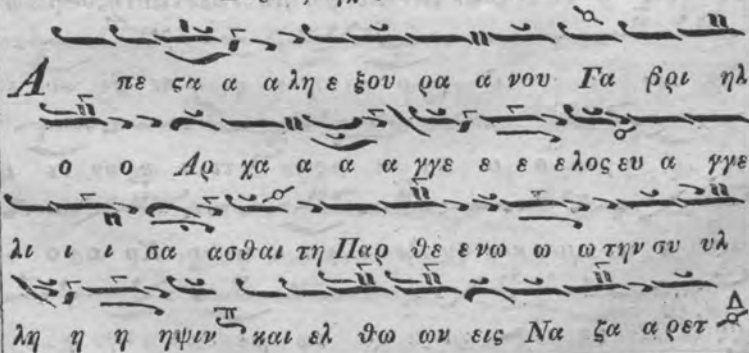 Α πε ϛα α α λη ε ξου ρα α νου Γα βρι ηλ
ο ο Αρ χα α α α γγε ε ε ε λος ευ α γγε
λι ι ι σα ασθαι τη Παρ θε ε νω ω ω την συ υλ
λη η η ηψιν και ελ θω ων εις Να ζα α ρετ